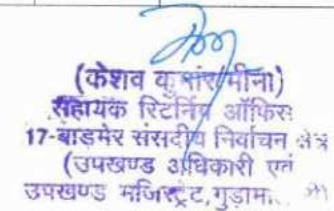 (केशव कुमार मीना)
सहायक रिटर्निंग ऑफिसर
17-बाड़मेर संसदीय निर्वाचन क्षेत्र
(उपखण्ड अधिकारी एवं
उपखण्ड मजिस्ट्रेट,